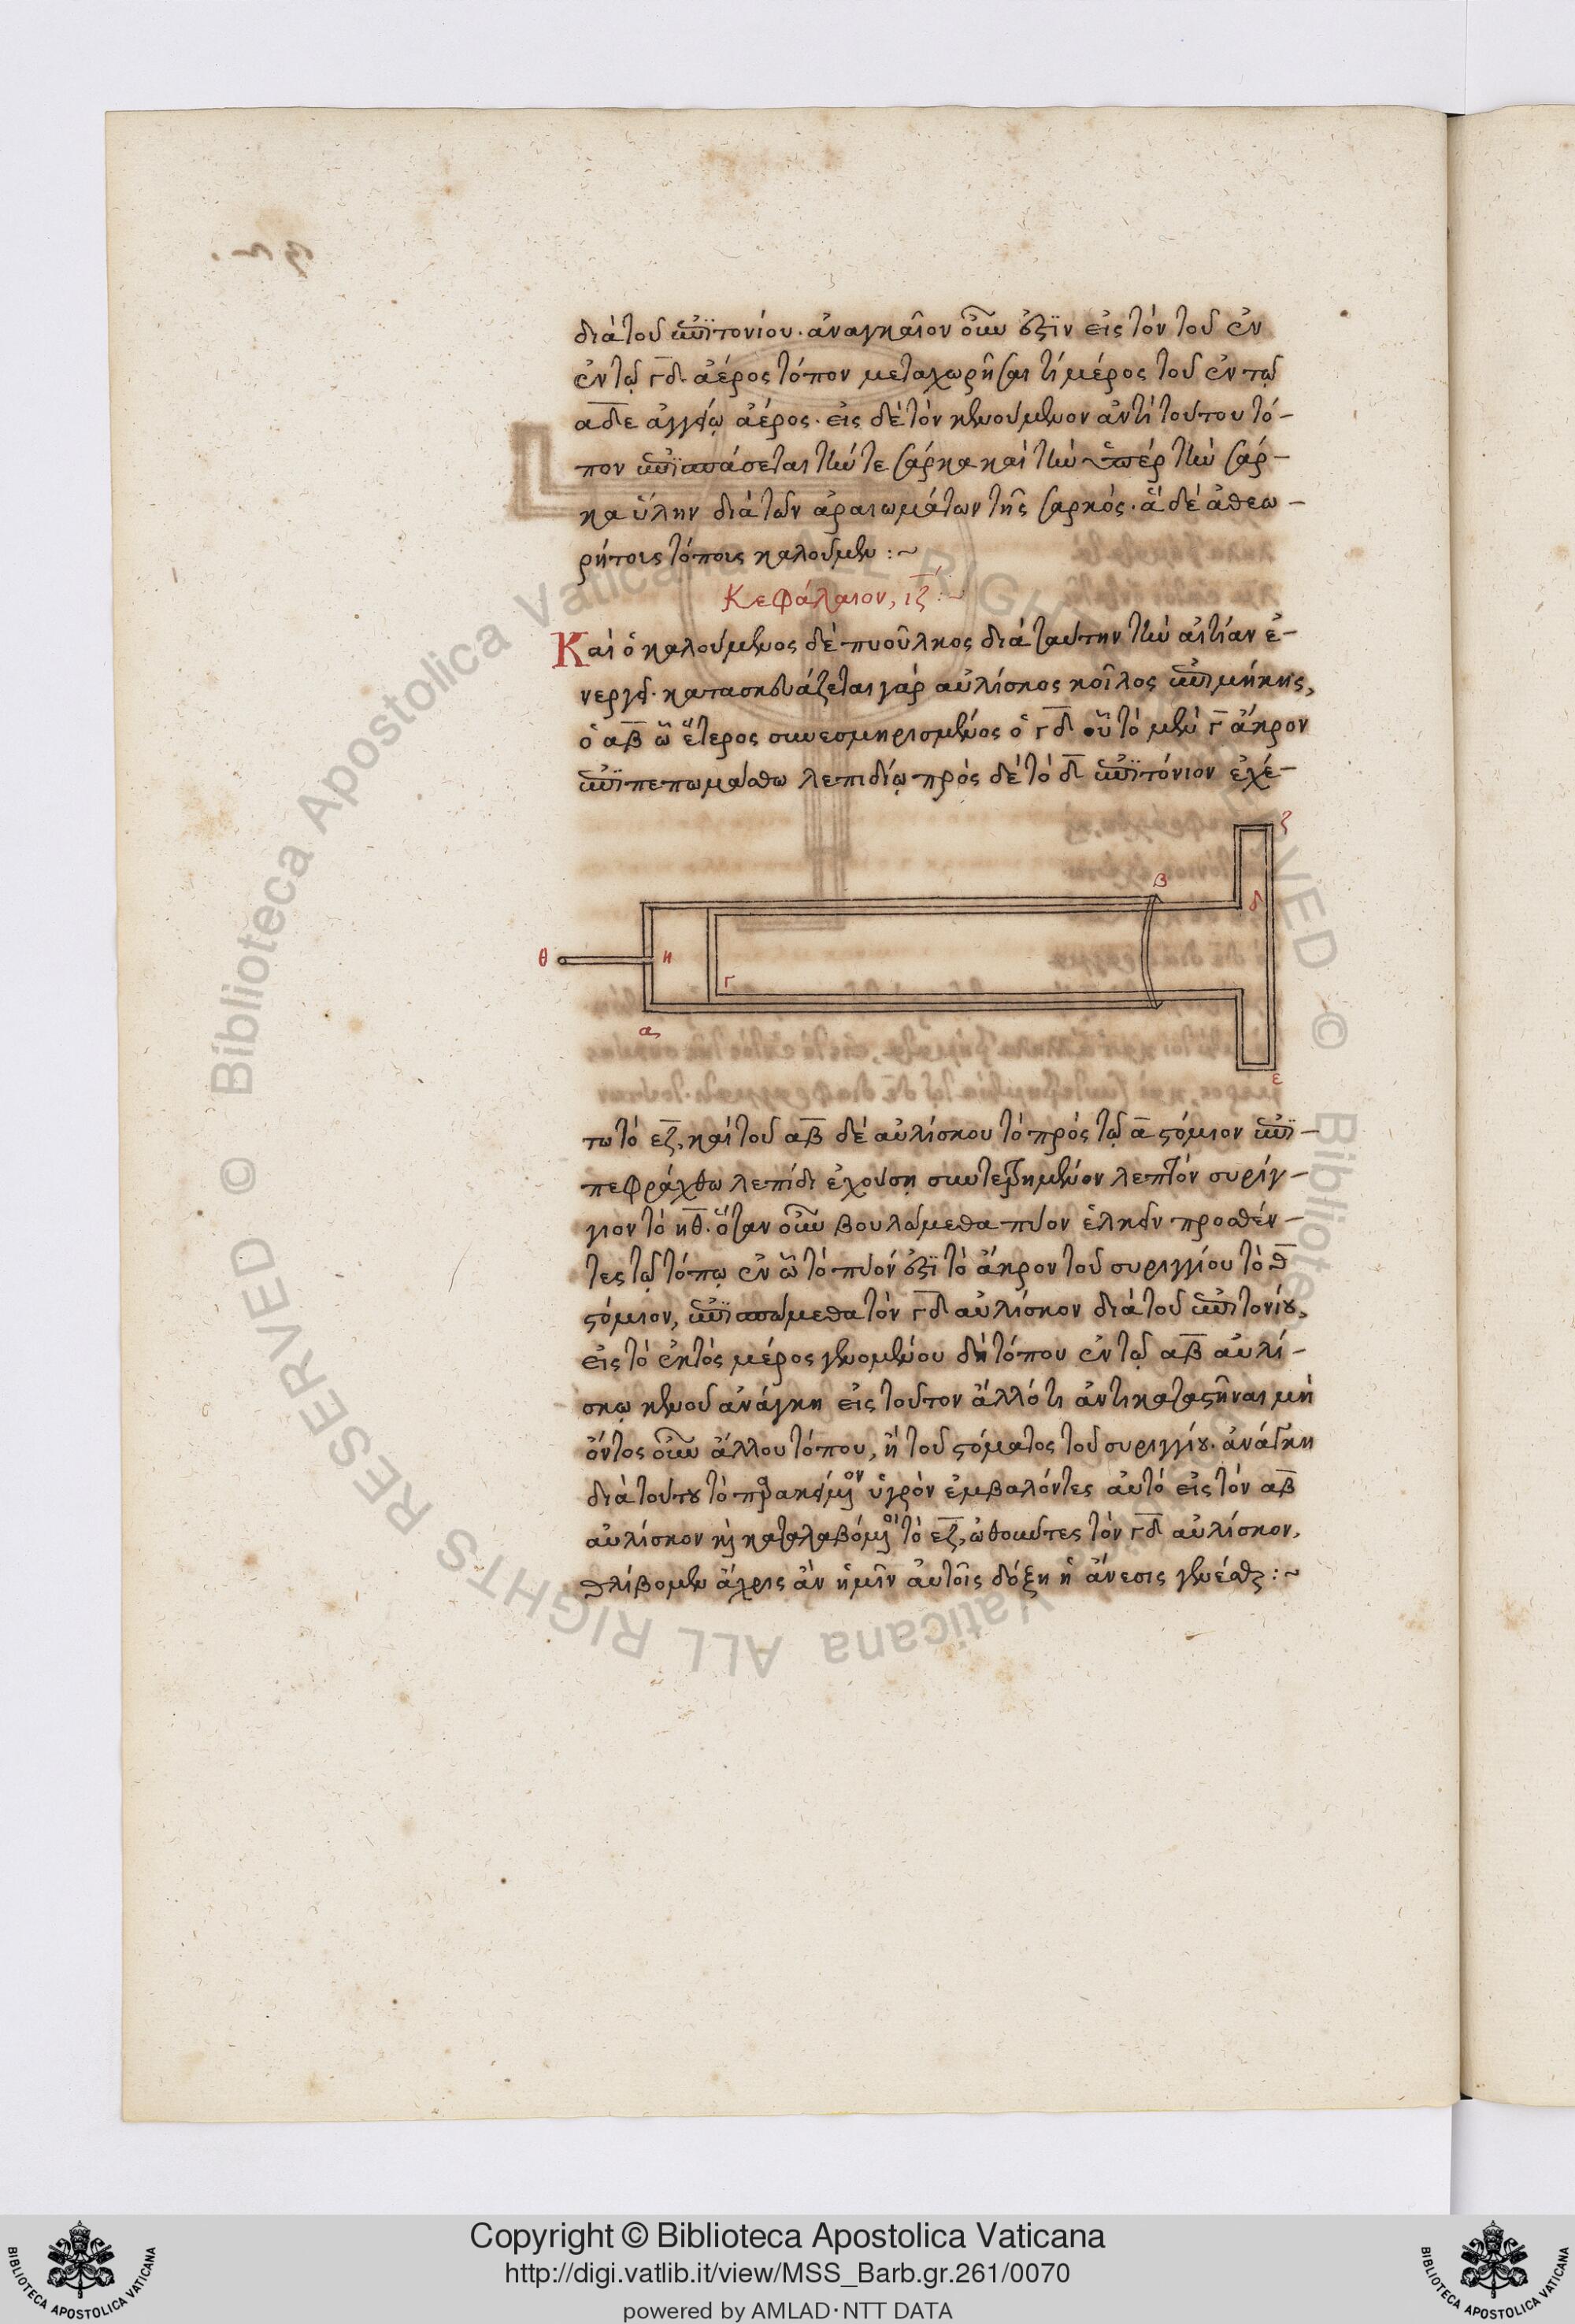 διὰ τοῦ ἐπιτονίου. ἀναγκαῖον οὖν ἐστὶν εἰς τὸν τοῦ ἐν
ἐν τῷ γδ ἀέρος τόπον μεταχωρῆσαι τὶ μέρος τοῦ ἐν τῷ
αδε ἀγγείῳ ἀέρος. εἰς δὲ τὸν κενούμενον ἀντὶ τούτου τό-
πον ἐπισπάσεται τήν τε σάρκα καὶ τὴν ὑπὲρ τὴν σάρ-
κα ὕλην διὰ τῶν ἀραιωμάτων τῆς σαρκός. ἃ δὲ ἀθεω-
ρήτους τόπους καλοῦμεν :~
Κεφάλαιον, ιζ :~
Καὶ ὁ καλούμενος δὲ πυοῦλκος διὰ ταύτην τὴν αἰτίαν ἐ-
νεργεῖ. κατασκευάζεται γὰρ αὐλίσκος κοῖλος ἐπιμήκης,
ὁ αβ ᾧ ἕτερος συνεσμηρισμένος ὁ γδ οὗ τὸ μὲν γ ἄκρον
ἐπιπεπωμάσθω λεπιδίῳ πρὸς δὲ τὸ δ ἐπιτόνιον ἐχέ-
ζ
β
δ
θ
η
γ
α
ε
τω τὸ εζ, καὶ τοῦ αβ δὲ αὐλίσκου τὸ πρὸς τῷ α στόμιον ἐπι-
πεφράχθω λεπίδι ἐχούσῃ συντετρημένον λεπτὸν συρίγ-
γιον τὸ ηθ. ὅταν οὖν βουλώμεθα πύον ἑλκεῖν προσθέν-
τες τῷ τόπῳ ἐν ᾧ τὸ πύον ἐστὶ τὸ ἄκρον τοῦ συριγγίου τὸ θ
στόμιον, ἐπισπώμεθα τὸν γδ αὐλίσκον διὰ τοῦ ἐπιτονίου,
εἰς τὸ ἐκτὸς μέρος γενομένου δὴ τόπου ἐν τῷ αβ αὐλί-
σκῳ κενοῦ ἀνάγκη εἰς τοῦτον ἄλλό τι ἀντικαταστῆναι μὴ
ὄντος οὖν ἄλλου τόπου, ἢ τοῦ στόματος τοῦ συριγγίου. ἀνάγκη
διὰ τούτου τὸ παρακείμενον ὑγρὸν ἐμβαλόντες αὐτὸ εἰς τὸν αβ
αὐλίσκον καὶ καταλαβόμενοι τὸ εζ, ὠθοῦντες τὸν γδ αὐλίσκον,
θλίβομεν ἄχρις ἂν ἡμῖν αὐτοῖς δόξῃ ἡ ἄνεσις γενέσθαι :~
Biblioteca Apostolica Vaticana ALL RIGHTS RESERVED ©
Biblioteca Apostolica Vaticana ALL RIGHTS RESERVED ©
Copyright © Biblioteca Apostolica Vaticana
http://digi.vatlib.it/view/MSS_Barb.gr.261/0070
powered by AMLAD·NTT DATA
BIBLIOTECA APOSTOLICA VATICANA
BIBLIOTECA APOSTOLICA VATICANA